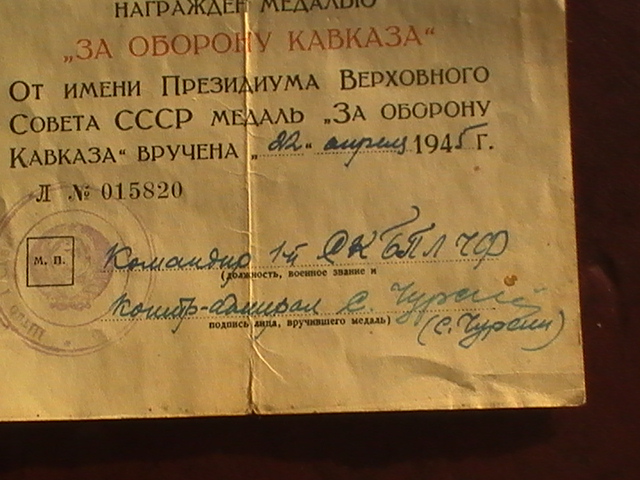 НАГРАЖДЕН МЕДАЛЬЮ
„ЗА ОБОРОНУ КАВКАЗА“
От имени Президиума Верховного
Совета СССР медаль „За оборону
Кавказа“ вручена „22“ апреля 1945 г.
Л № 015820
М. П.
Командир 1й СКБПЛ ЧФ
(должность, военное звание и
Контр-адмирал С. Чурсин
подпись лица, вручившего медаль)
(С. Чурсин)